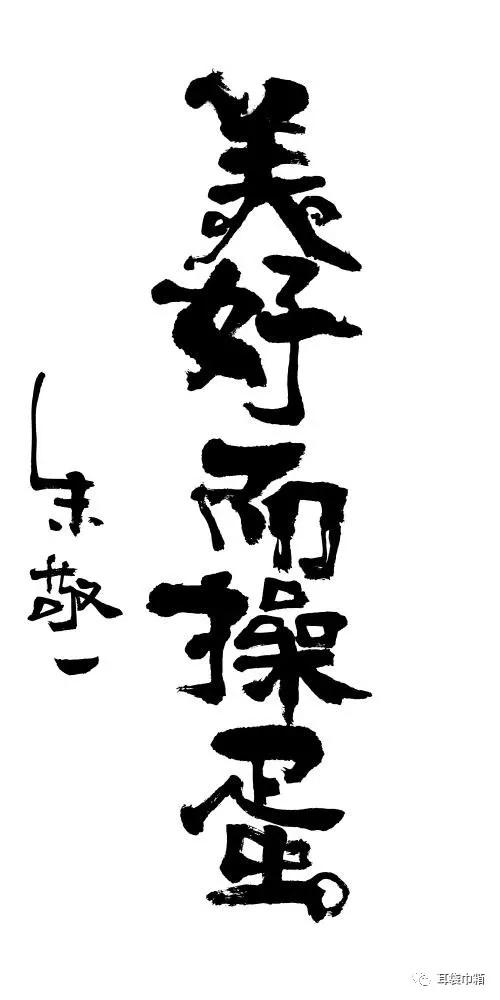 美好而操蛋。
朱敬一
耳袋巾箱